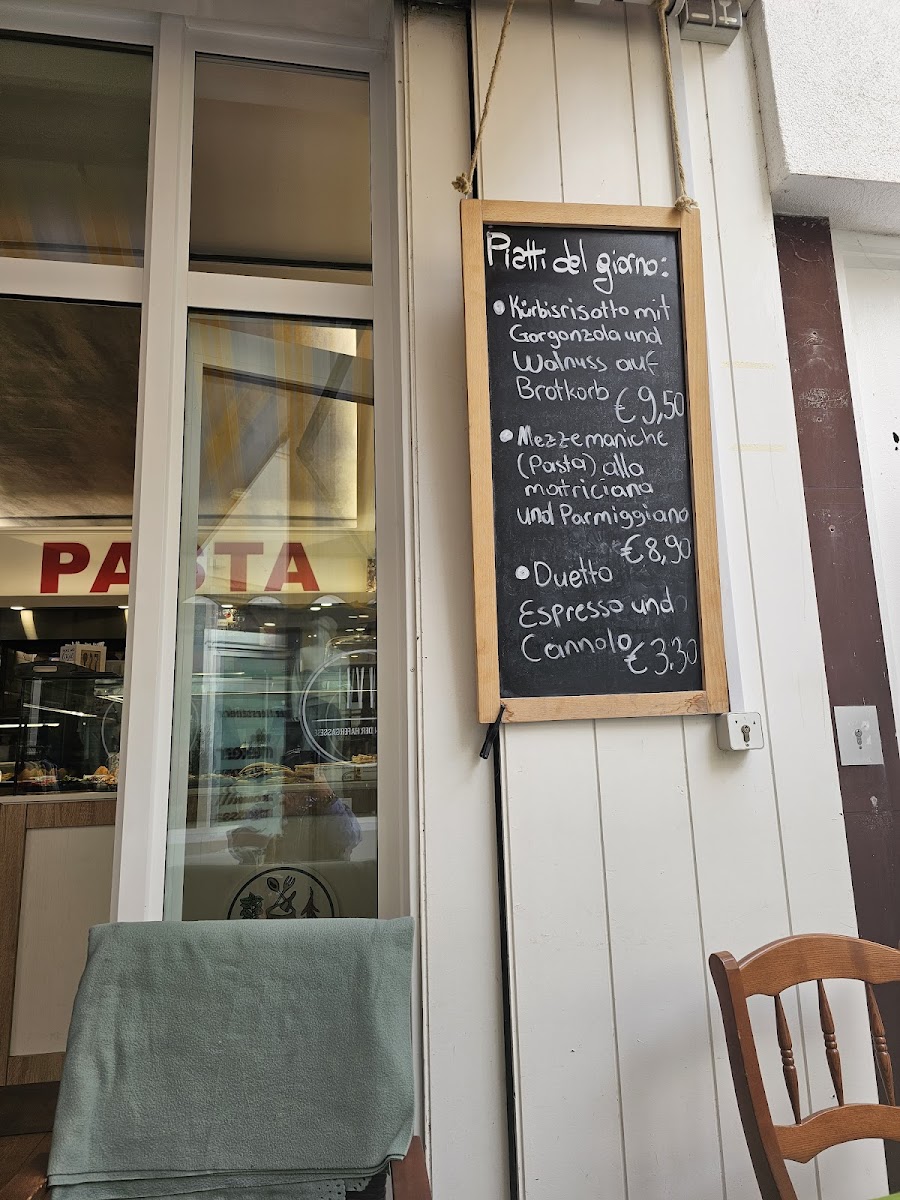 Piatti del giorno:
• Kürbisrisotto mit
Gorgonzola und
Walnuss auf
Brotkorb € 9,50
• Mezzemaniche
(Pasta) alla
matriciana
und Parmiggiano
€ 8,90
• Duetto
Espresso und
Cannolo € 3,30
PASTA